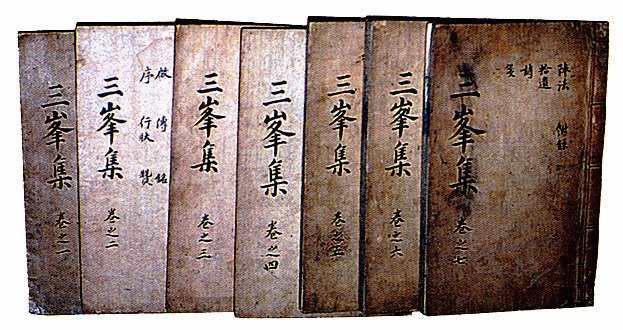 三峯集
卷之一
三峯集
卷之二
序 行狀
傳 銘
三峯集
卷之三
三峯集
卷之四
三峯集
卷之五
三峯集
卷之六
三峯集
卷之七
陣法 附錄
拾遺
詩